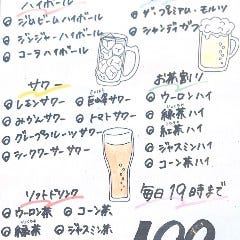 ハイボール
ジムビームハイボール
ジンジャーハイボール
コーラハイボール
ザ・プレミアム・モルツ
シャンディガフ
サワー
レモンサワー
みかんサワー
グレープフルーツサワー
シークワーサーサワー
巨峰サワー
トマトサワー
お茶割り
ウーロンハイ
緑茶ハイ
紅茶ハイ
ジャスミンハイ
コーン茶ハイ
ソフトドリンク
ウーロン茶
緑茶
コーン茶
ジャスミン茶
毎日19時まで